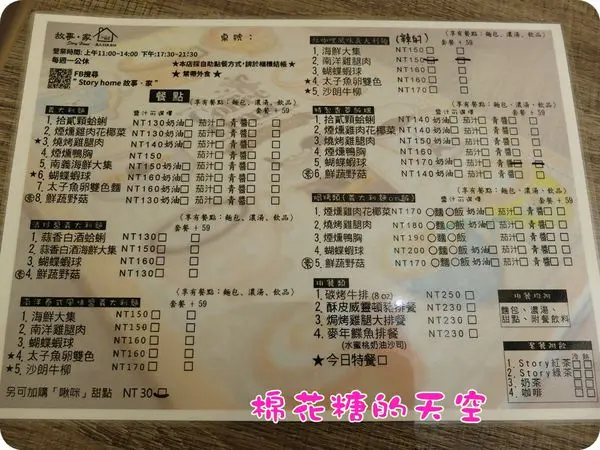 故事·家
Story Home
桌號：
營業時間:上午11:00~14:00 下午17:30~21:30
每週一公休
FB搜尋
"Story home 故事·家"
★本店採自助點餐方式,請於櫃檯結帳★
★禁帶外食★
餐點
義大利麵
(享有餐點：麵包、濃湯、飲品)
醬汁可選擇 套餐 + 59
1. 拾貳顆蛤蜊 NT130 奶油□ 茄汁□ 青醬□ □
2. 煙燻雞肉花椰菜 NT130 奶油□ 茄汁□ 青醬□ □
★3. 燒烤雞腿肉 NT140 奶油□ 茄汁□ 青醬□ □
4. 煙燻鴨胸 NT150 奶油□ 茄汁□ 青醬□ □
5. 南義海鮮大集 NT150 奶油□ 茄汁□ 青醬□ □
★6. 蝴蝶蝦球 NT160 奶油□ 茄汁□ 青醬□ □
7. 太子魚卵雙色麵 NT160 奶油□ 茄汁□ 青醬□ □
素8. 鮮蔬野菇 NT130 奶油□ 茄汁□ 青醬□ □
清炒風義大利麵
(享有餐點：麵包、濃湯、飲品)
套餐 + 59
1. 蒜香白酒蛤蜊 NT130□ □
2. 蒜香白酒海鮮大集 NT150□ □
3. 蝴蝶蝦球 NT160□ □
素4. 鮮蔬野菇 NT130□ □
南洋泰式風味醬義大利麵
(享有餐點：麵包、濃湯、飲品)
套餐 + 59
1. 海鮮大集 NT150□ □
2. 南洋雞腿肉 NT150□ □
3. 蝴蝶蝦球 NT160□ □
★4. 太子魚卵雙色 NT160□ □
★5. 沙朗牛柳 NT170□ □
另可加購「啾咪」甜點 NT30
紅咖哩風味義大利麵 (辣的)
(享有餐點：麵包、濃湯、飲品)
套餐 + 59
1. 海鮮大集 NT150□ □
2. 南洋雞腿肉 NT150□ □
3. 蝴蝶蝦球 NT160□ □
★4. 太子魚卵雙色 NT160□ □
★5. 沙朗牛柳 NT170□ □
(享有餐點：麵包、濃湯、飲品)
醬汁可選擇 套餐 + 59
1. 拾貳顆蛤蜊 NT140 奶油□ 茄汁□ 青醬□ □
2. 煙燻雞肉花椰菜 NT140 奶油□ 茄汁□ 青醬□ □
3. 燒烤雞腿肉 NT150 奶油□ 茄汁□ 青醬□ □
4. 煙燻鴨胸 NT160 奶油□ 茄汁□ 青醬□ □
5. 蝴蝶蝦球 NT170 奶油□ 茄汁□ 青醬□ □
素6. 鮮蔬野菇 NT140 奶油□ 茄汁□ 青醬□ □
焗烤類(義大利麵or飯)
(享有餐點：麵包、濃湯、飲品)
醬汁可選擇 套餐 + 59
1. 煙燻雞肉花椰菜 NT170 ○麵○飯 奶油□ 茄汁□ 青醬□ □
2. 燒烤雞腿肉 NT180 ○麵○飯 奶油□ 茄汁□ 青醬□ □
3. 煙燻鴨胸 NT190 ○麵○飯 奶油□ 茄汁□ 青醬□ □
4. 蝴蝶蝦球 NT200 ○麵○飯 奶油□ 茄汁□ 青醬□ □
素5. 鮮蔬野菇 NT170 ○麵○飯 奶油□ 茄汁□ 青醬□ □
排餐類
1. 碳烤牛排 (8 oz) NT250□
2. 酥皮威靈頓豬排餐 NT230□
3. 焗烤雞腿大排餐 NT230□
4. 麥年鰈魚排餐 NT230□
(水蜜桃奶油沙司)
★今日特餐□
排餐均附
麵包、濃湯、
甜點、附餐飲料
套餐附飲
冷 熱
1. Story紅茶 □ □
2. Story綠茶 □ □
3. 奶茶 □ □
4. 咖啡 □ □
棉花糖的天空